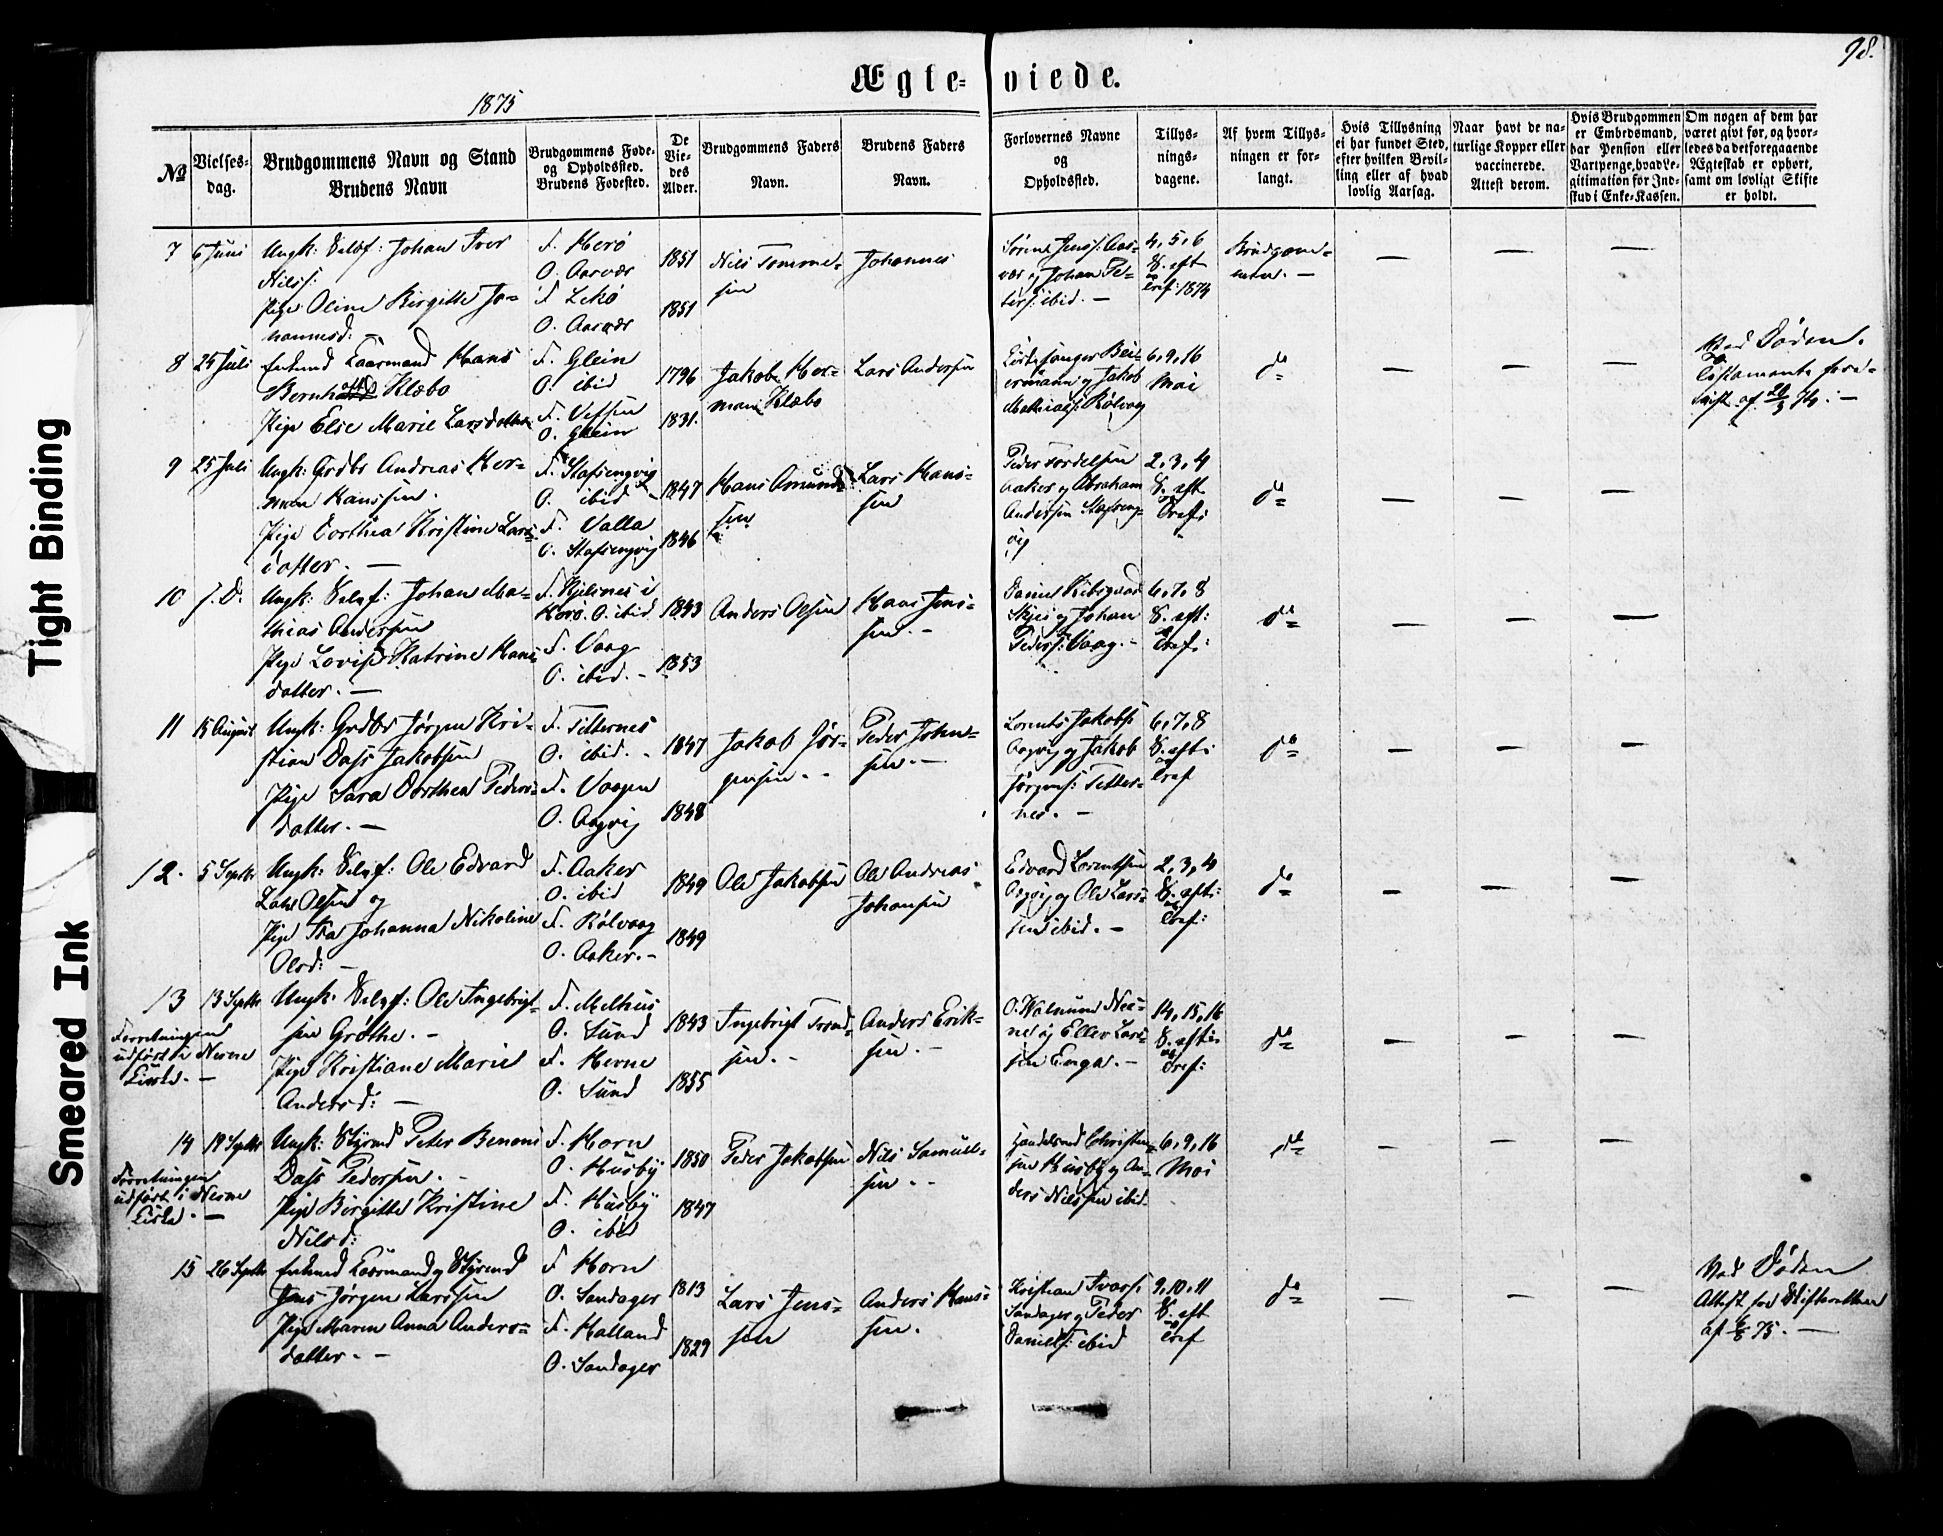 98.
Ægte-viede.
1875
No
Vielses-
dag.
Brudgommens Navn og Stand
Brudens Navn
Brudgommens Føde-
og Opholdssted.
Brudens Fødested.
De
Vie-
des
Alder.
Brudgommens Faders
Navn.
Brudens Faders
Navn.
Forlovernes Navne
og
Opholdssted.
Tillys-
nings-
dagene.
Af hvem Tillys-
ningen er for-
langt.
Hvis Tillysning
ei har fundet Sted,
efter hvilken Bevil-
ling eller af hvad
lovlig Aarsag.
Naar havt de na-
turlige Kopper eller
vaccinerede.
Attest derom.
Hvis Brudgommen
er Embedsmand,
har Pension eller
Vartpenge, hvad Le-
gitimation for Ind-
skud i Enke-Kassen.
Om nogen af dem har
været givt før, og hvor-
ledes da det foregaaende
Ægteskab er ophørt,
samt om lovligt Skifte
er holdt.
7
6 Juni
Ungk: Selvf: Johan Iver
Nilss:
Pige Oline Birgitte Jo-
hannesd: —
F. Herø
O. Aasvær
F. Lekø
O. Aasvær
1851
1851
Nils Tomme-
sen
Johannes
Sørens Jenss: Aas-
vær og Johan Pe-
ders: ibid. —
4, 5, 6
S. eft
Tref: 1874
Brudgom-
men. —
8
25 Juli
Enkemd Kaarmand Hans
Bernhard Klæbo
Pige Else Marie Larsdatter
F. Glein
O. ibid
F. Vefsen
O. Glein
1796
1831.
Jakob Her-
man Klæbo
Lars Andersen
Kirkesanger Bei-
ermann og Jakob
Mathiass: Rølvaag
6, 9, 16
Mai
do
Ved Døden.
Testamente fore-
vist af
9
25 Juli
Ungk: Grdbr Andreas Her-
man Hanssen.
Pige Dorthea Kristine Lars-
datter. —
F. Stafsengvig
O. ibid
F. Valla
O. Stafsengvig
1847
1846
Hans Amund-
sen
Lars Hans-
sen
Peder Tordelsen
Aaker og Abraham
Andersen Stafseng-
vig
2, 3, 4
S. eft
Tref:
do
10
J. D.
Ungk: Selvf: Johan Ma-
thias Andersen
Pige Lovise Katrine Hans-
datter. —
Herø. O. ibid
F. Vaag
O. ibid. -
1843
1853
Anders Olsen
Hans Jens-
sen. -
Johan
Peders: Vaag. -
6, 7, 8
S. eft:
Tref:
do
11
15 August
Ungk: Grdbr Jørgen Kri-
stian Dass Jakobsen
Pige Sara Dorthea Peders-
datter. —
F. Titternes
O. ibid. -
F. Vaagen
O. Aagvig
1847
1848
Jakob Jør-
gensen. -
Peder John-
sen. —
Lorents Jakobs:
Aagvig og Jakob
Jørgens: Titter-
nes. —
6, 7, 8
S. eft:
Tref
do
12.
5 Septbr
Ungk: Selvf: Ole Edvard
Olsen og
Pige Johanna Nikoline
Olsd: —
F. Aaker
O. ibid
F. Rølvaag
O. Aaker. -
1849
1849
Ole Jakobsen
Ole Andreas
Johansen
Edvard Lorentsen
Aagvig og Ole Lars-
sen ibid. —
2, 3, 4
S. eft:
Tref:
do
13
13 Septbr
Forretningen
udført i Nesne
Kirke. —
Ungk: Selvf: Ole Ingebrigt-
sen Grøthe. -
Pige Kristiane Marie
Andersd: —
F. Melhus
O. Sund
F. Nesne
O. Sund
1843
1855
Ingebrigt Trond-
sen. -
Anders Erik-
sen. —
Nes-
ne og Eller Lars-
sen Enga. —
14, 15, 16
S. eft:
Tref:
do
14
19 Septbr
Forretningen
udført i Nesne
Kirke. —
Ungk: Styrmd Peter Benoni
Dass Pedersen. -
Pige Birgitte Kristine
Nilsd:
F. Horn
O. Husby
F. Husby
O. ibid
1850
1847
Peder Jakobsen
Nils Samuel-
sen. -
Handelsmd Christen-
sen Husby og An-
ders Nilssen ibid.
6, 9, 16
Mai
do
15
26 Septbr
Enkemd Kaarmand og Styrmd
Jens Jørgen Larssen
Pige Maren Anna Anders-
datter. -
F. Horn
O. Sandager
F. Halland
O. Sandager
1813
1829
Lars Jens-
sen
Anders Hans-
sen.
Kristian Ivars:
Sandager og Peder
Daniels: ibid
9, 10, 11
S. eft
Tref
do
Ved Døden
Attest fra Skifteretten
af 75. —
Tight Binding
Smeared Ink